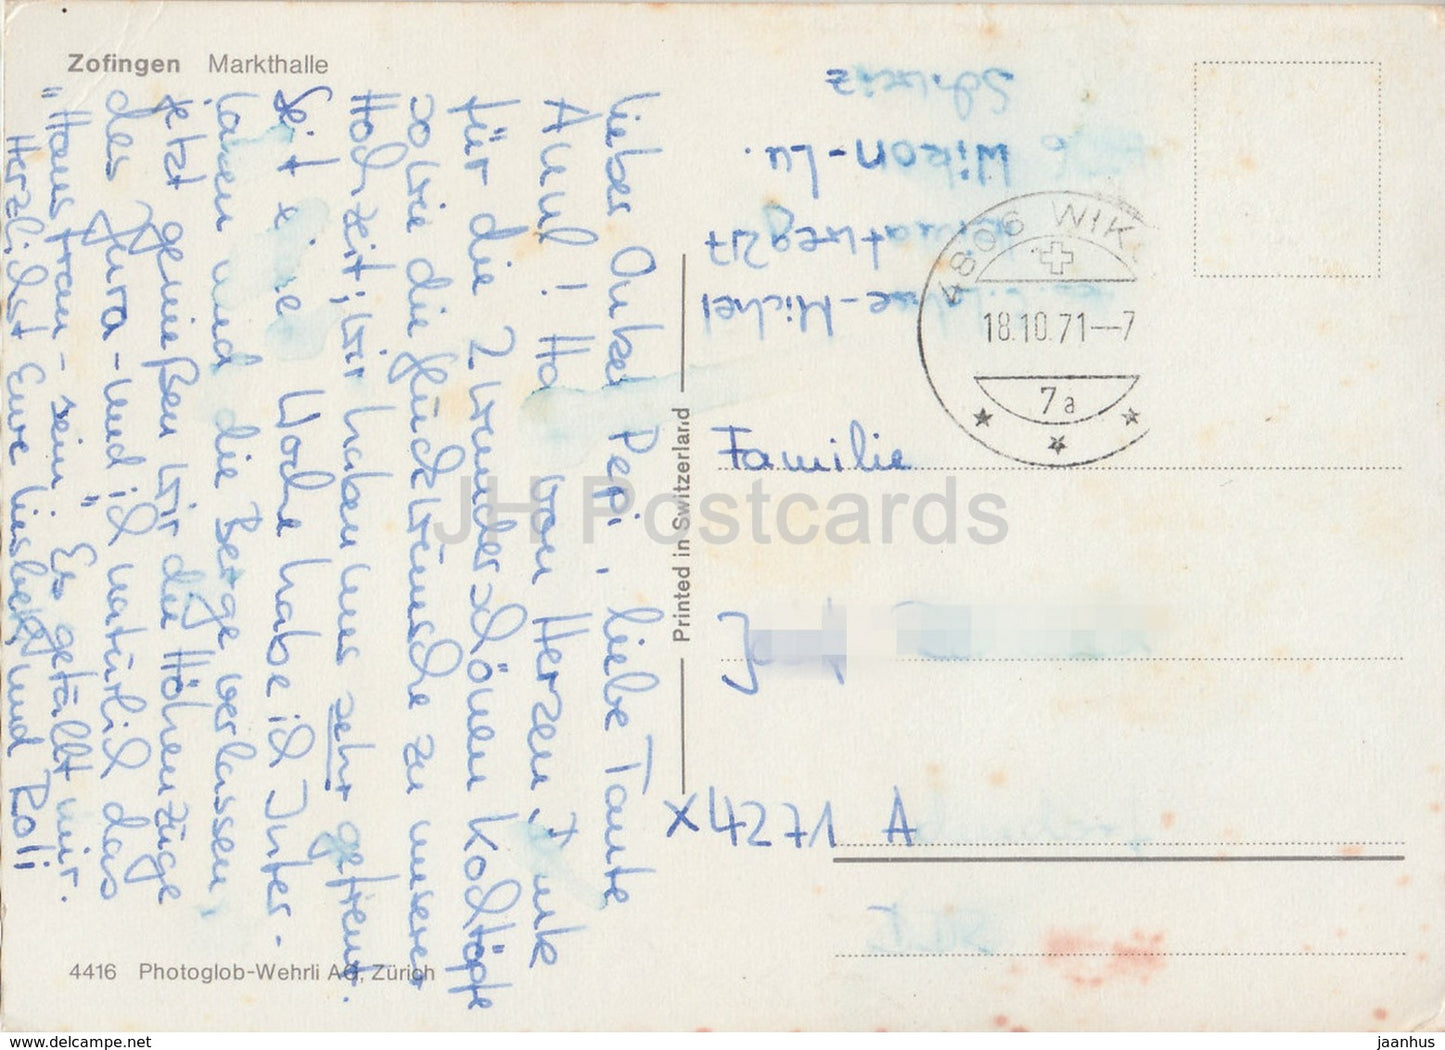 Zofingen Markthalle
Lieber Onkel Pepi, liebe Tante
Anni! Ha von Herzen Dank
für die 2 wunderschönen Kochtöpfe
sowie die Glückwünsche zu unserer
Hochzeit; wir haben uns sehr gefreut.
Seit eine Woche habe ich Inter-
laken und die Berge verlassen,
jetzt genießen wir die Höhenzüge
des Jura - und ich natürlich das
"Hausfrau-sein". Es gefällt mir.
Herzlichst Eure Liesbeth und Roli
4416 Photoglob-Wehrli AG, Zürich
Printed in Switzerland
-Michel
weg 217
6 Wikon-Lu.
Schweiz
4806 WIK
18.10.71—7
7a
Familie
x4271 A
JH Postcards
www.delcampe.net
jaanhus